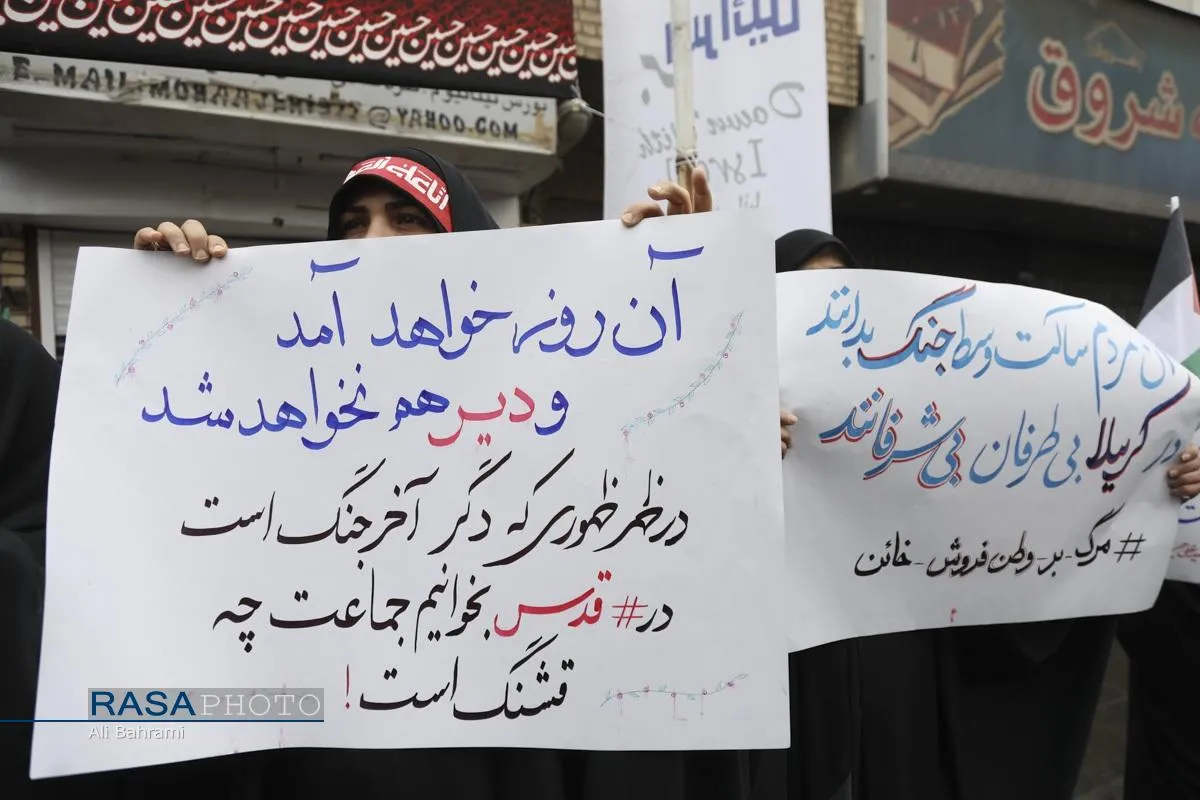 حسین حسین حسین حسین حسین حسین
بورس تیتانیوم
E.MAIL:MOHAAJER1977@YAHOO.COM
Down with
شروق
آن روز خواهد آمد
و دیر هم نخواهد شد
در ظهر ظهوری که دگر آخر جنگ است
در #قدس بخوانیم جماعت چه
قشنگ است!
آن مردم ساکت وسط جنگ بدانند
در کربلا بی طرفان بی شرفانند
#مرگ-بر-وطن فروش-خائن
RASA PHOTO
Ali Bahrami